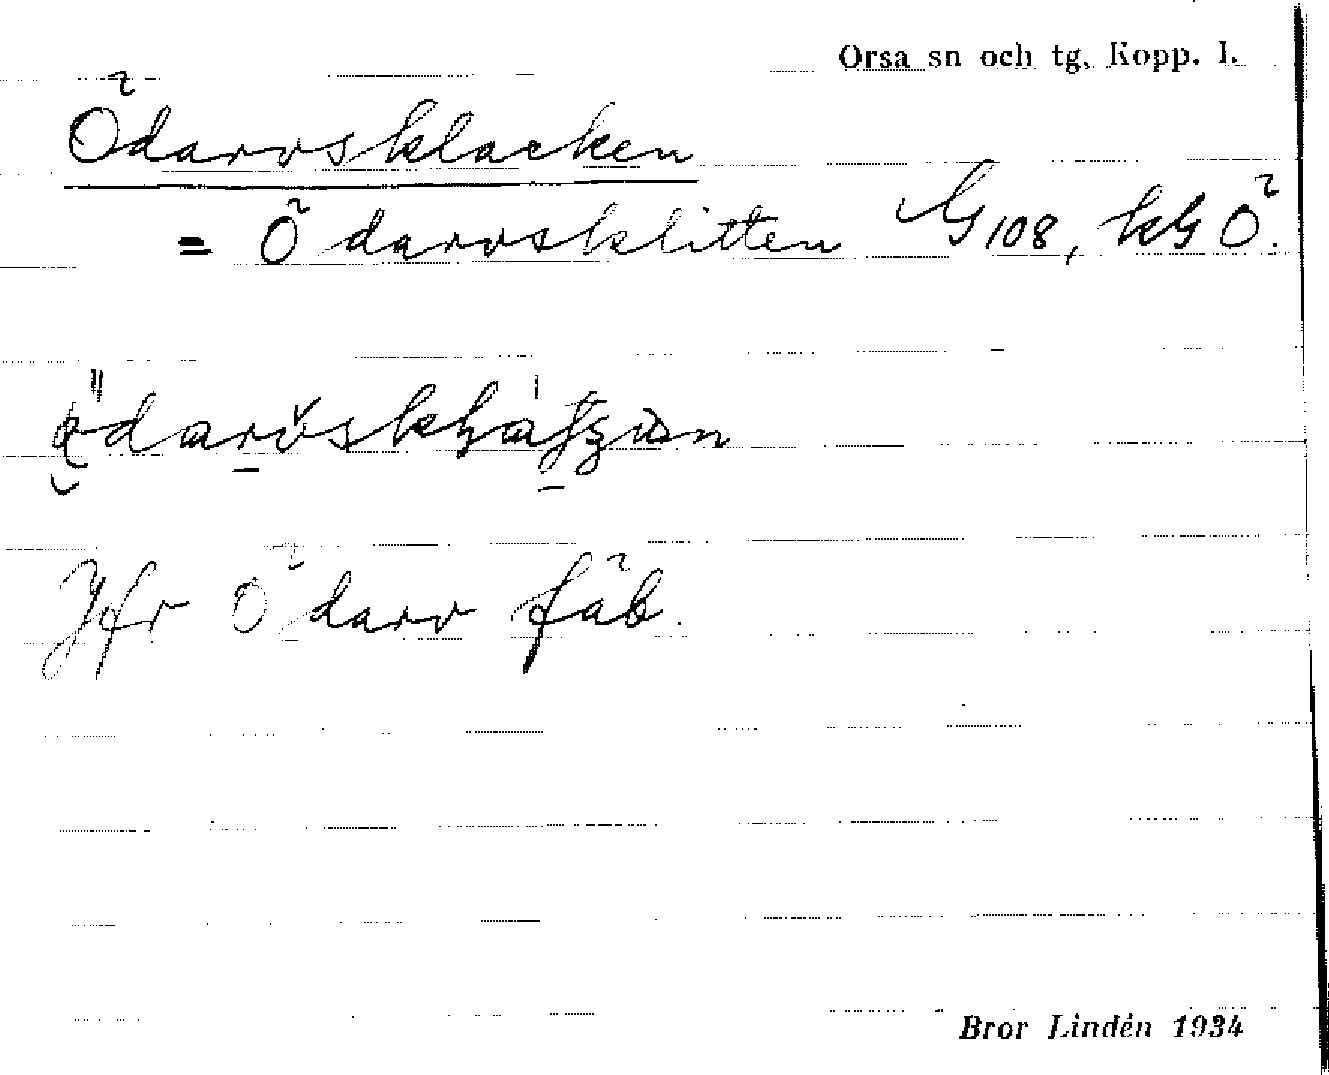 Orsa sn och tg. Kopp. l.
Ödarvsklacken
= Ödarvsklitten G 108, kG Ö.
Jfr Ödarv fäb.
Bror Lindén 1934